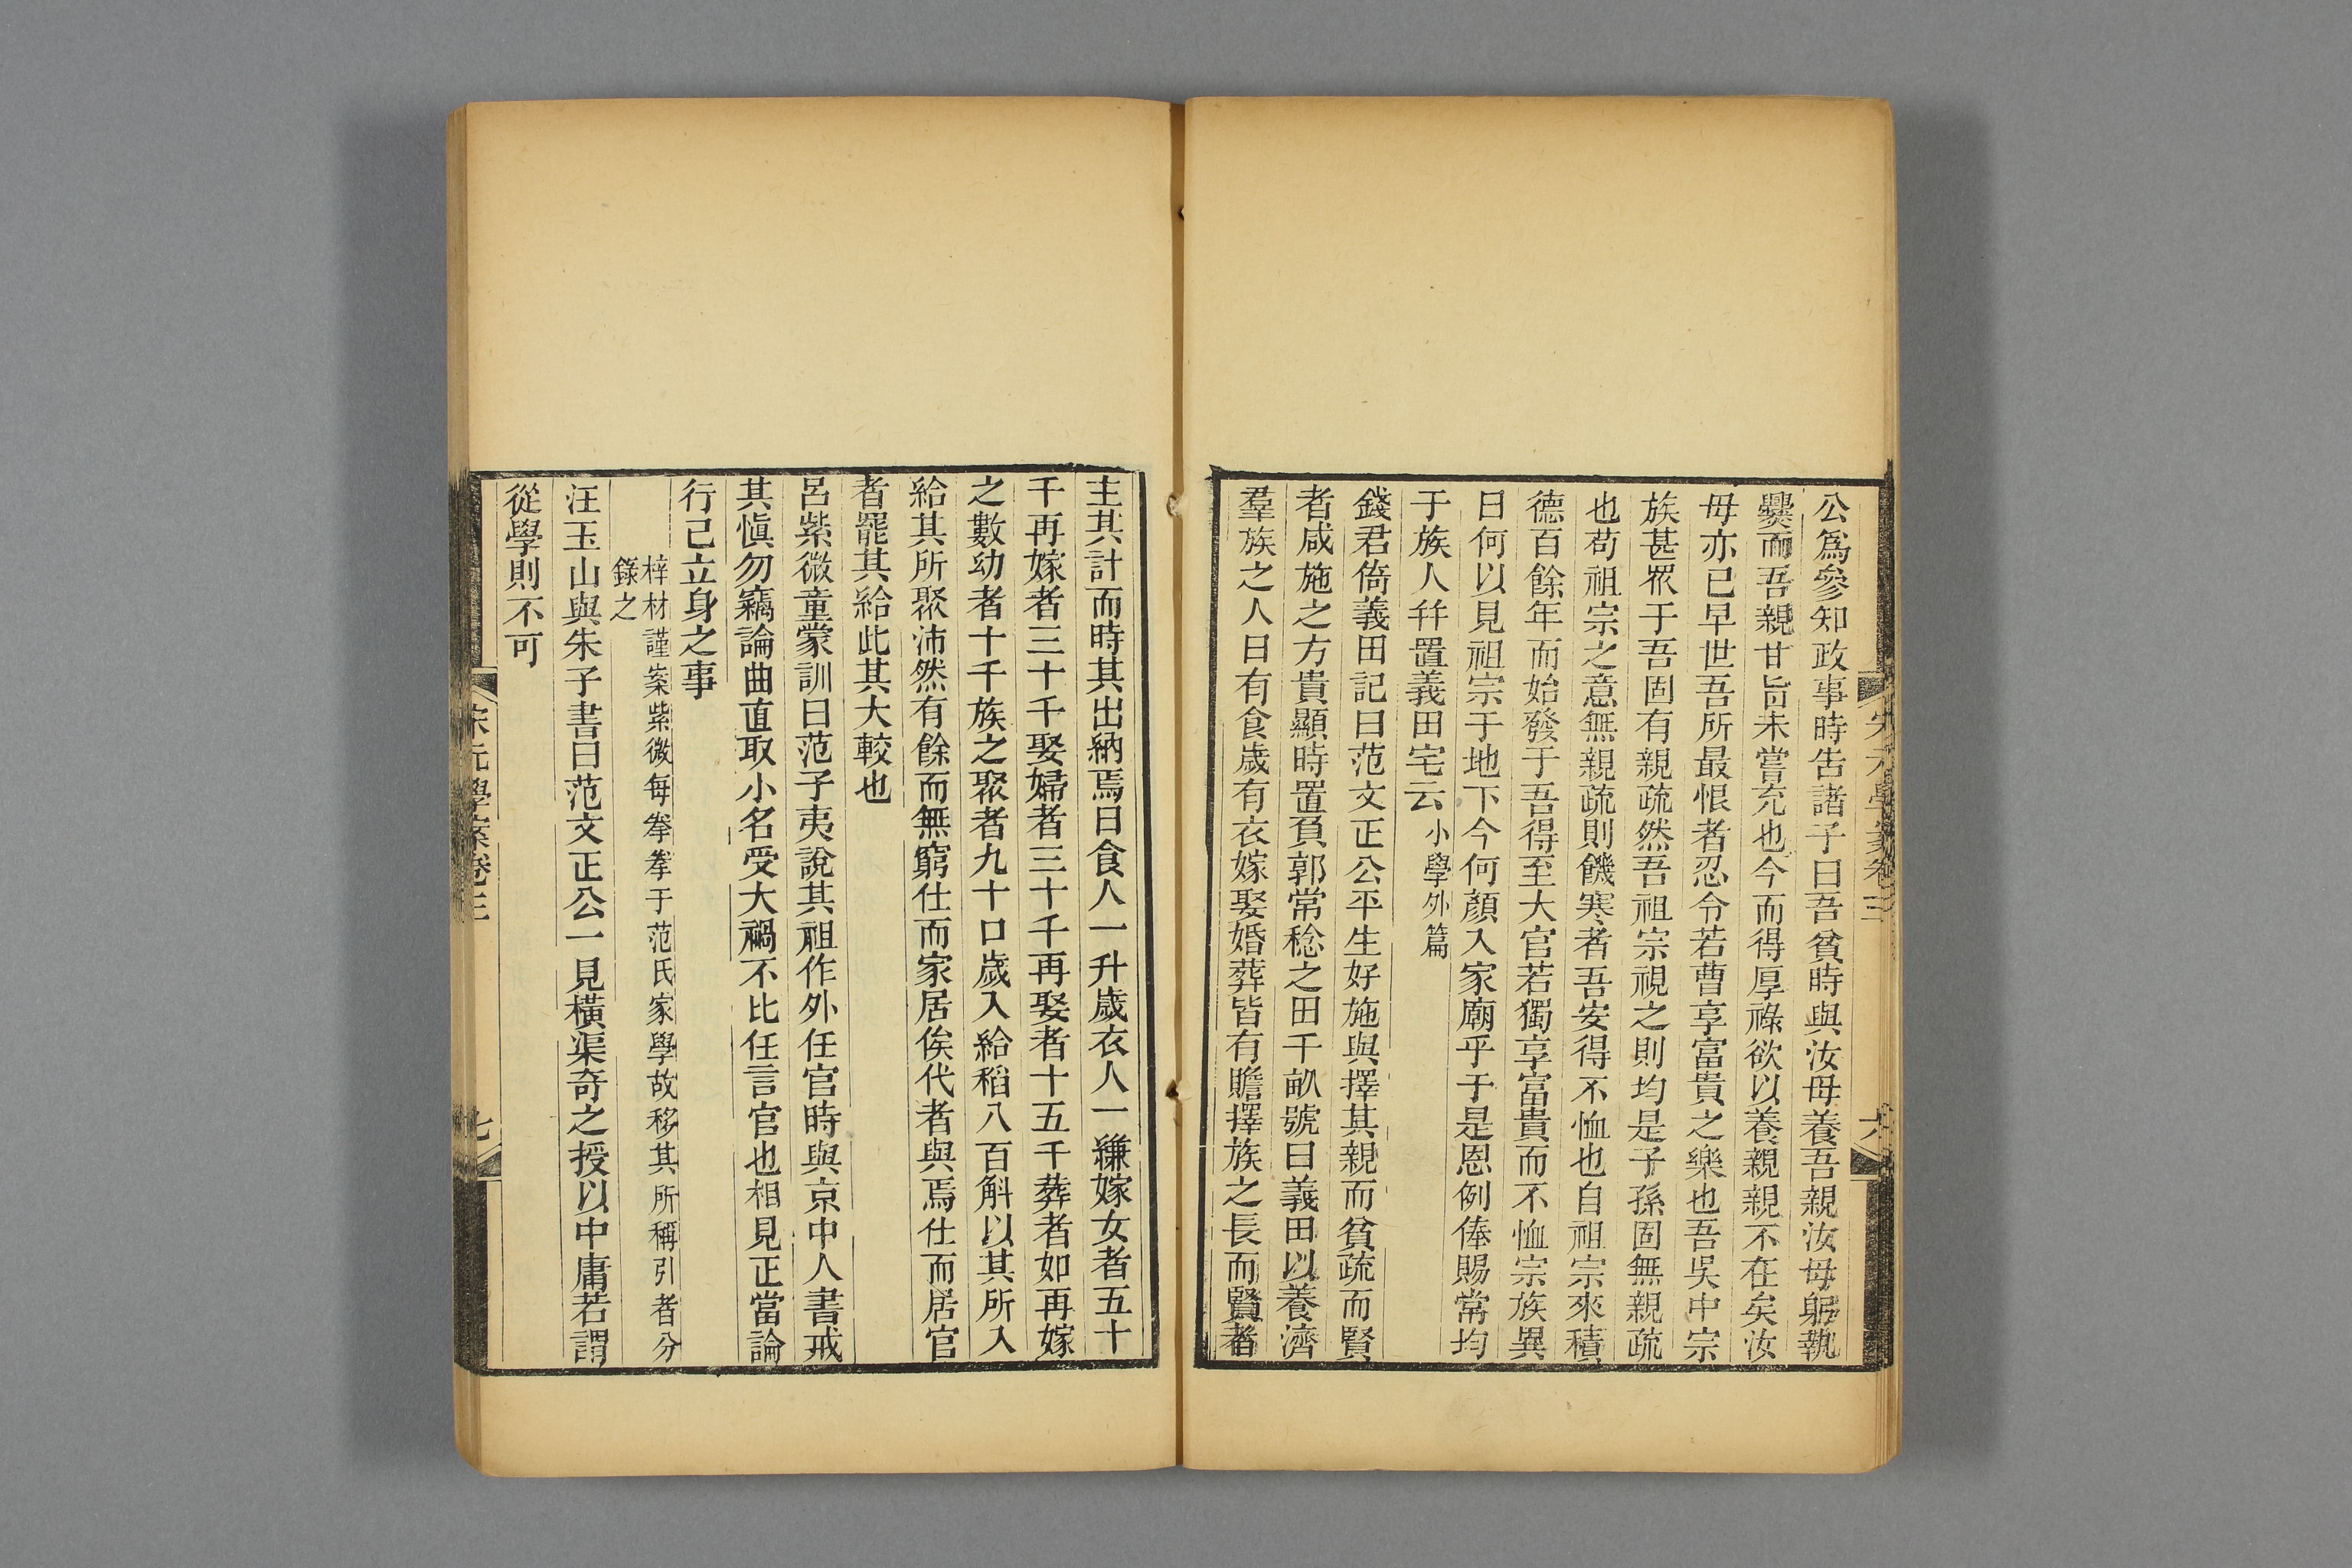 公爲參知政事時告諸子曰吾貧時與汝母養吾親汝母躬執
爨而吾親甘旨未嘗充也今而得厚祿欲以養親親不在矣汝
母亦已早世吾所最恨者忍令若曹享富貴之樂也吾吳中宗
族甚眾于吾固有親疏然吾祖宗視之則均是子孫固無親疏
也苟祖宗之意無親疏則饑寒者吾安得不恤也自祖宗來積
德百餘年而始發于吾得至大官若獨享富貴而不恤宗族異
日何以見祖宗于地下今何顏入家廟乎于是恩例俸賜常均
于族人幷置義田宅云小學外篇
錢君倚義田記曰范文正公平生好施與擇其親而貧疏而賢
者咸施之方貴顯時置負郭常稔之田千畝號曰義田以養濟
羣族之人日有食歲有衣嫁娶婚葬皆有贍擇族之長而賢者
宋元學案卷三 六
主其計而時其出納焉日食人一升歲衣人一縑嫁女者五十
千再嫁者三十千娶婦者三十千再娶者十五千葬者如再嫁
之數幼者十千族之聚者九十口歲入給稻八百斛以其所入
給其所聚沛然有餘而無窮仕而家居俟代者與焉仕而居官
者罷其給此其大較也
呂紫微童蒙訓曰范子夷說其祖作外任官時與京中人書戒
其愼勿竊論曲直取小名受大禍不比任言官也相見正當論
行己立身之事
梓材謹案紫微每拳拳于范氏家學故移其所稱引者分
錄之
汪玉山與朱子書曰范文正公一見橫渠奇之授以中庸若謂
從學則不可
宋元學案卷三 七